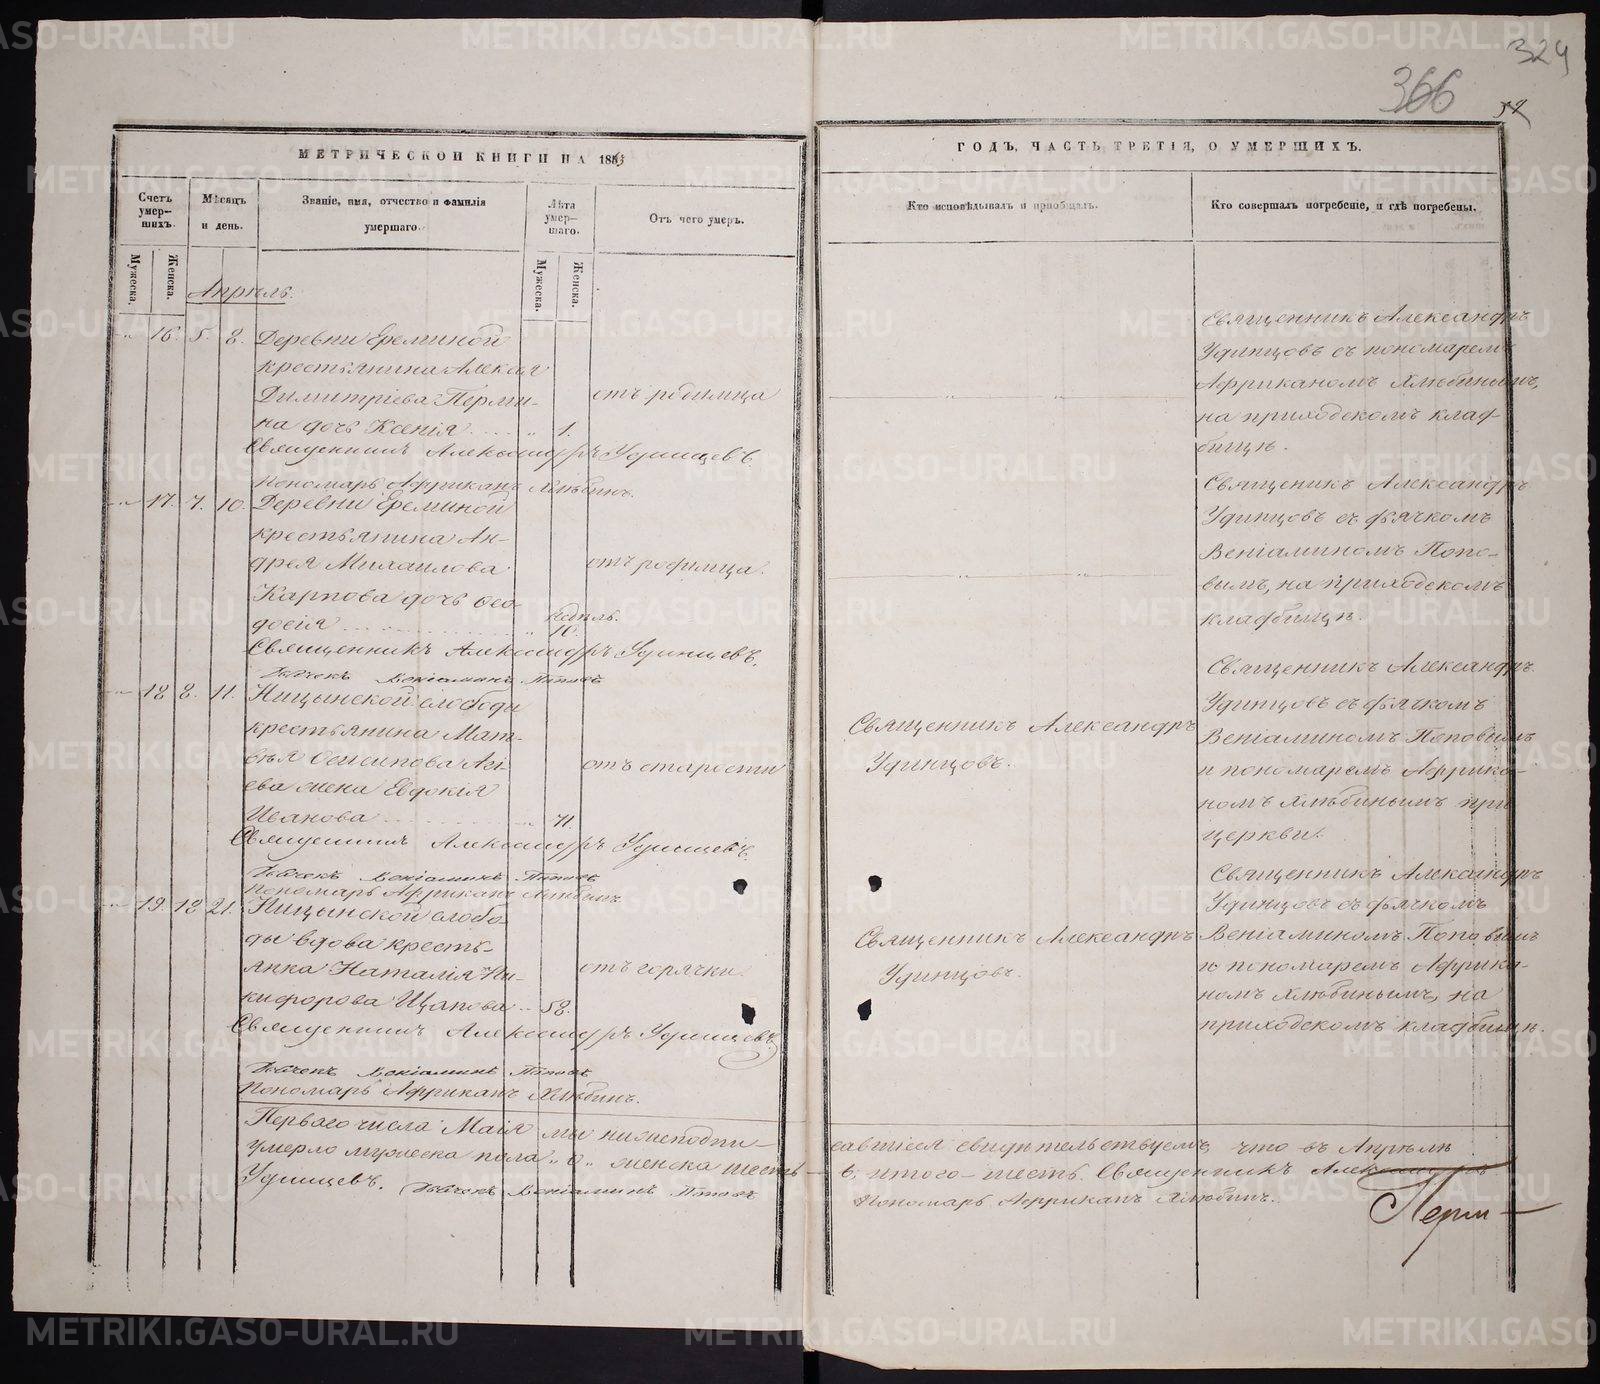 324
366
МЕТРИЧЕСКОЙ КНИГИ НА 1883
ГОДЪ, ЧАСТЬ ТРЕТІЯ, О УМЕРШИХЪ.
Счетъ умер-
шихъ.
Мѣсяцъ
и день.
Званіе, имя, отчество и фамилія
умершаго.
Лѣта
умер-
шаго.
Отъ чего умеръ.
Кто исповѣдывалъ и пріобщалъ.
Кто совершалъ погребеніе, и гдѣ погребены.
Мужеска.
Женска.
Мужеска.
Женска.
Апрѣль.
16. 5. 8. Деревни Ереминой
крестьянина Алексѣя
Димитріева Перми-
на дочь Ксенія
1.
отъ родимца
Священникъ Александръ
Удинцовъ съ пономаремъ
Африканомъ Хлюбинымъ,
на приходскомъ клад-
бищѣ.
Священникъ Александръ Удинцевъ.
Пономарь Африканъ Хлюбинъ.
17. 7. 10. Деревни Ереминой
крестьянина Ан-
дрея Михаилова
Карпова дочь Ѳео-
досія
недѣль.
10.
отъ родимца.
Священикъ Александръ
Удинцовъ съ дьячкомъ
Веніаминомъ Попо-
вымъ, на приходскомъ
кладбищѣ.
Священникъ Александръ Удинцевъ.
Дьячекъ Веніаминъ Поповъ
18 8. 11. Ницынской слободы
крестьянина Мат-
вѣя Осипова
жена Евдокія
Иванова
71.
отъ старости
Священникъ Александръ
Удинцовъ.
Священникъ Александръ
Удинцовъ съ дьячкомъ
Веніаминомъ Поповымъ
и пономаремъ Африка-
номъ Хлюбинымъ при
церкви.
Священникъ Александръ Удинцевъ.
Дьячекъ Веніаминъ Поповъ
Пономарь Африканъ Хлюбинъ
19. 18 21. Ницынской слобо-
ды вдова кресть-
янка Наталія Ни-
кифорова Щапова
58.
отъ горячки.
Священникъ Александръ
Удинцовъ.
Священникъ Александръ
Удинцовъ съ дьячкомъ
Веніаминомъ Поповымъ
и пономаремъ Африка-
номъ Хлюбинымъ, на
приходскомъ кладбищѣ.
Священникъ Александръ Удинцевъ.
Дьячекъ Веніаминъ Поповъ
Пономарь Африканъ Хлюбинъ.
Перваго числа Маія мы нижеподпи-
савшіеся свидѣтельствуемъ, что въ Апрѣлѣ
умерло мужеска пола „0„ женска шесть –
6, итого – шесть. Священникъ Александръ
Удинцевъ. Дьячекъ Веніаминъ Поповъ
Пономарь Африканъ Хлюбинъ.
METRIKI.GASO-URAL.RU